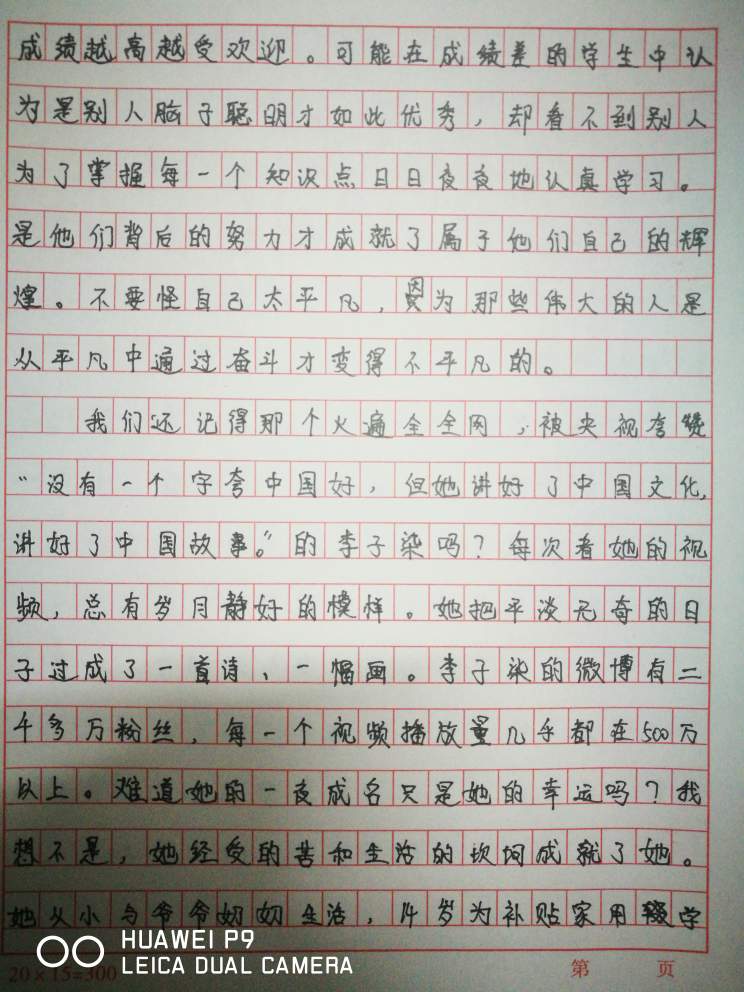 成绩越高越受欢迎。可能在成绩差的学生中认
为是别人脑子聪明才如此优秀，却看不到别人
为了掌握每一个知识点日日夜夜地认真学习。
是他们背后的努力才成就了属于他们自己的辉
煌。不要怪自己太平凡，因为那些伟大的人是
从平凡中通过奋斗才变得不平凡的。
我们还记得那个火遍全全网，被央视夸赞
“没有一个字夸中国好，但她讲好了中国文化,
讲好了中国故事。”的李子染吗？每次看她的视
频，总有岁月静好的模样。她把平淡无奇的日
子过成了一首诗、一幅画。李子柒的微博有二
千多万粉丝，每一个视频播放量几乎都在500万
以上。难道她的一夜成名只是她的幸运吗？我
想不是，她经受的苦和生活的坎坷成就了她。
她从小与爷爷奶奶生活，14岁为补贴家用辍学
HUAWEI P9
LEICA DUAL CAMERA
20×15=300
第 页